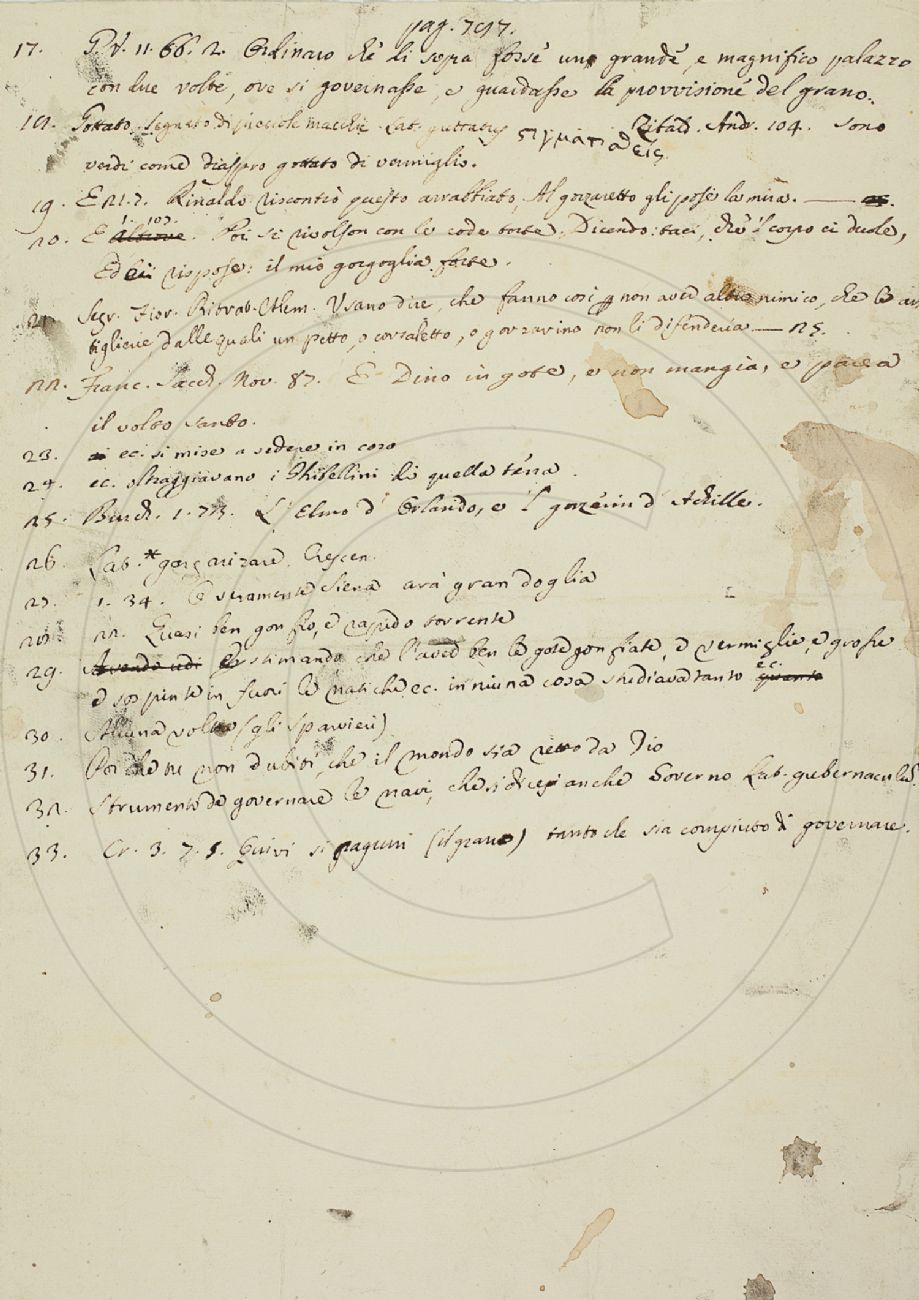 pag. 797.
17. G. V. 11. 66. 2. Ordinaro chè lì sopra fosse uno grandè, e magnifico palazzo
con due voltè, ove si governasse, e guardasse la provvisionè del grano.
18. Gottato. Segnato di piccole macchie. Lat. guttatus στιγματ Ricett. And. 104. sono
verdi come diaspro gottato di vermiglio.
19. E 21. 7. Rinaldo riscontrò questo arrabbiato, Al gorzaretto gli pose la mira. —
20. E altrove 1. 107. Poi si rivolson con le code torte, Dicendo: taci, chè 'l corpo ci duole,
Ed ei rispose: il mio gorgoglia forte.
21. Segr. Fior. Ritrat. Alem. Usano dire, che fanno così p non aver altro nimico, che le ar
tiglierie, dalle quali un petto, o corsaletto, o gorzarino non li difenderia — 25.
22. Franc. Sacch. Nov. 87. E Dino in gote, e non mangia, e parea
il volto santo.
23. ec. si mise a sedere in coro
24. ec. oltraggiavano i Ghibellini di quella terra.
25. Burch. 1. 73. L' Elmo d' Orlando, e 'l gorzèrin d' Achille.
26. Lat. *gargarizare. Crescen.
27. 1. 34. E veramente Siena arà gran doglia
28. 22. Quasi ben gonfio, è rapido torrente
29. Avendo udi Et estimando che l'aver ben le gote gonfiate, è vermiglie, è grosse
è sospinte in fuori le natiche, ec. in niuna cosa studiava tanto quanto ec.
30. Alcuna volta (gli sparvieri)
31. Poi che tu non dubiti, che il mondo sia retto da Dio
32. Strumento da governare le navi, che si dice anche Governo Lat. gubernaculū.
33. Cr. 3. 7. 5. Quivi si paguri (il grano) tanto che sia compiuto di governare.